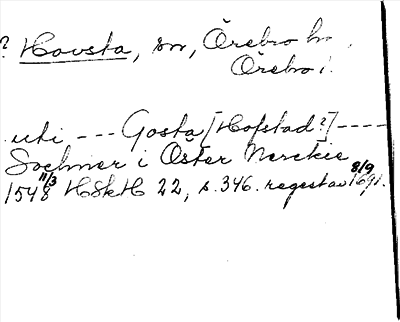 ? Hovsta, sn, Örebro hd,
Örebro l.
uti --- Gosta [Hofstad?] ----
Sochner i Öster Nerckie
1548 11/3 HSkH 22, s. 346. regest av 8/9 1691.